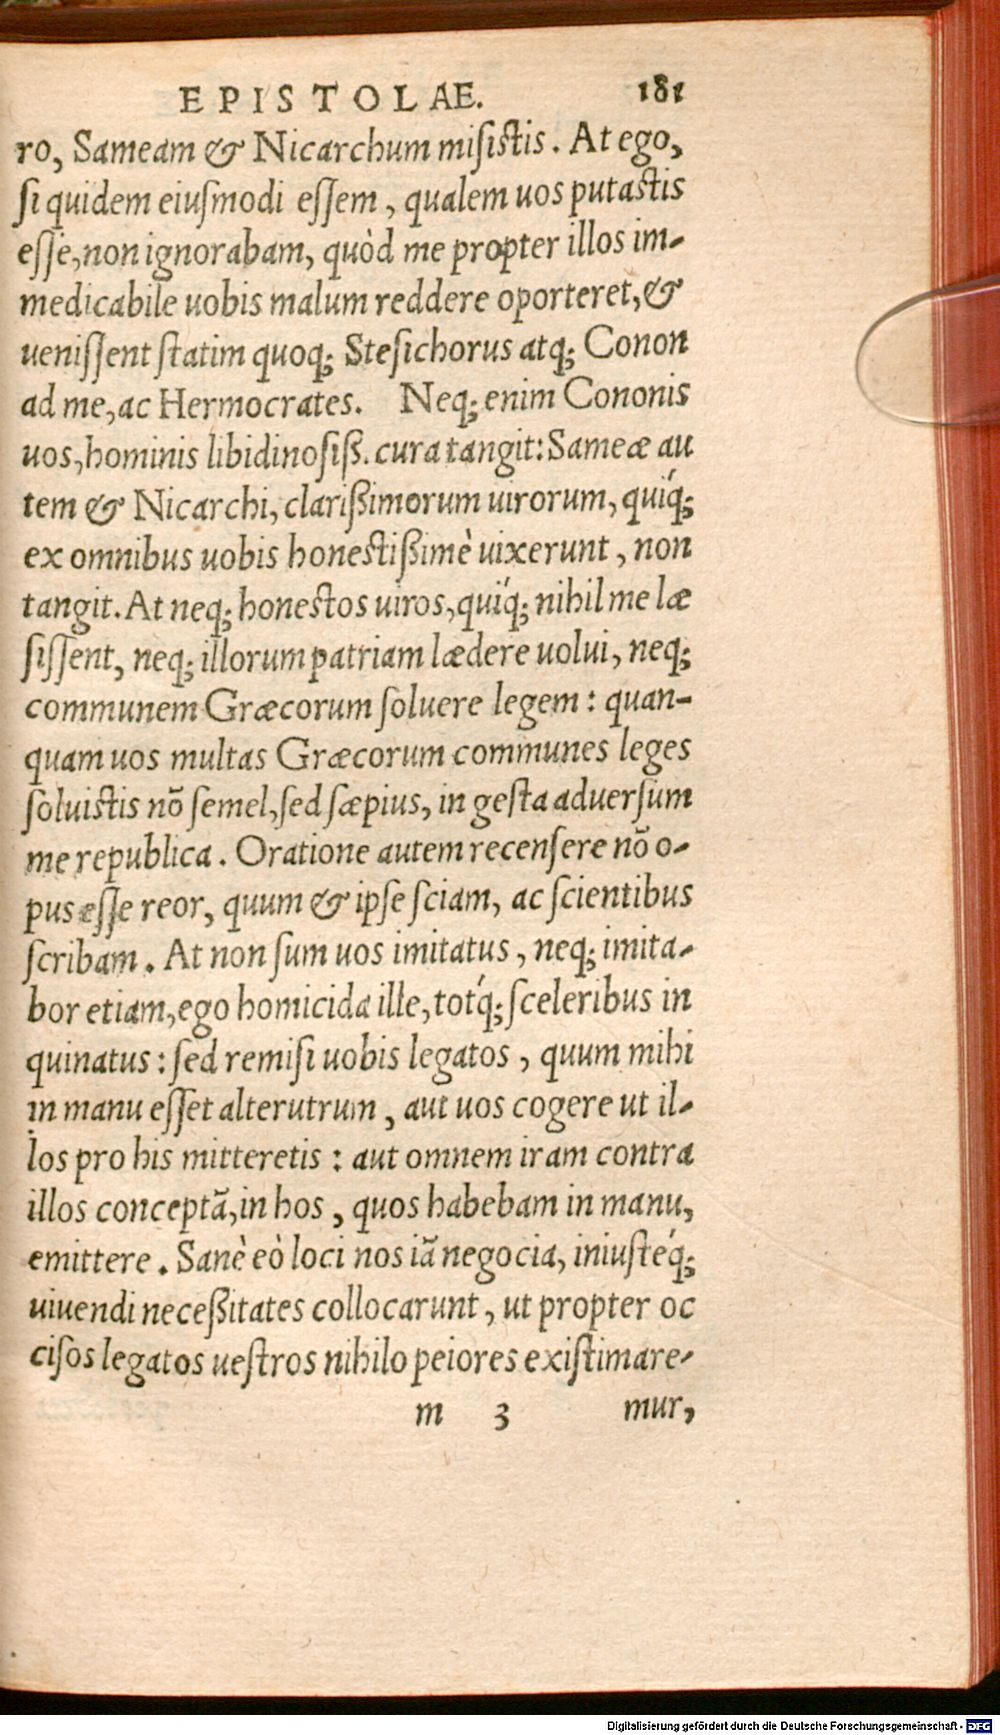 EPISTOLAE. 181
ro, Sameam & Nicarchum misiſtis. At ego,
ſi quidem eiuſmodi eſſem, qualem uos putaſtis
eſſe, non ignorabam, quòd me propter illos im-
medicabile uobis malum reddere oporteret, &
ueniſſent ſtatim quoq; Steſichorus atq; Conon
ad me, ac Hermocrates. Neq; enim Cononis
uos, hominis libidinoſiß. cura tangit: Sameæ au
tem & Nicarchi, clarißimorum uirorum, quíq;
ex omnibus uobis honeſtißimè uixerunt, non
tangit. At neq; honeſtos uiros, quíq; nihil me læ
ſiſſent, neq; illorum patriam lædere uolui, neq;
communem Græcorum ſoluere legem: quan-
quam uos multas Græcorum communes leges
ſoluiſtis nō ſemel, ſed ſæpius, in geſta aduerſum
me republica. Oratione autem recenſere nō o-
pus eſſe reor, quum & ipſe ſciam, ac ſcientibus
ſcribam. At non ſum uos imitatus, neq; imita-
bor etiam, ego homicida ille, totq́; ſceleribus in
quinatus: ſed remiſi uobis legatos, quum mihi
in manu eſſet alterutrum, aut uos cogere ut il-
los pro his mitteretis: aut omnem iram contra
illos conceptā, in hos, quos habebam in manu,
emittere. Sanè eò loci nos iā negocia, iniuſtéq;
uiuendi neceßitates collocarunt, ut propter oc
ciſos legatos ueſtros nihilo peiores exiſtimare-
m 3 mur,
Digitalisierung gefördert durch die Deutsche Forschungsgemeinschaft - DFG